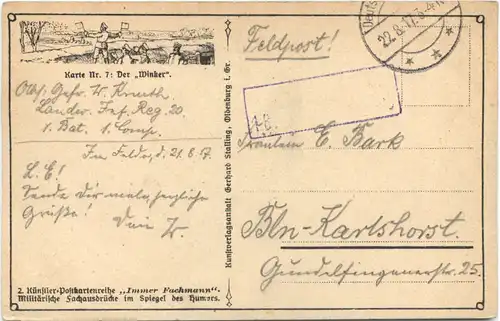 Karte Nr. 7: Der „Winker".
Obs. Gefr. W. Knuth
Landw. Inf. Reg. 20
1. Bat. 1. Comp.
Im Felde, d. 21.8.17
L. E.!
Sende Dir mal herzliche
Grüße!
Dein W.
2. Künstler-Postkartenreihe „Immer Fachmann".
Militärische Fachausdrücke im Spiegel des Humors.
Kunstverlagsanstalt Gerhard Stalling, Oldenburg i. Gr.
Feldpost!
22.8.17.
Fräulein E. Bark
Bln-Karlshorst.
Gundelfingerstr. 25.